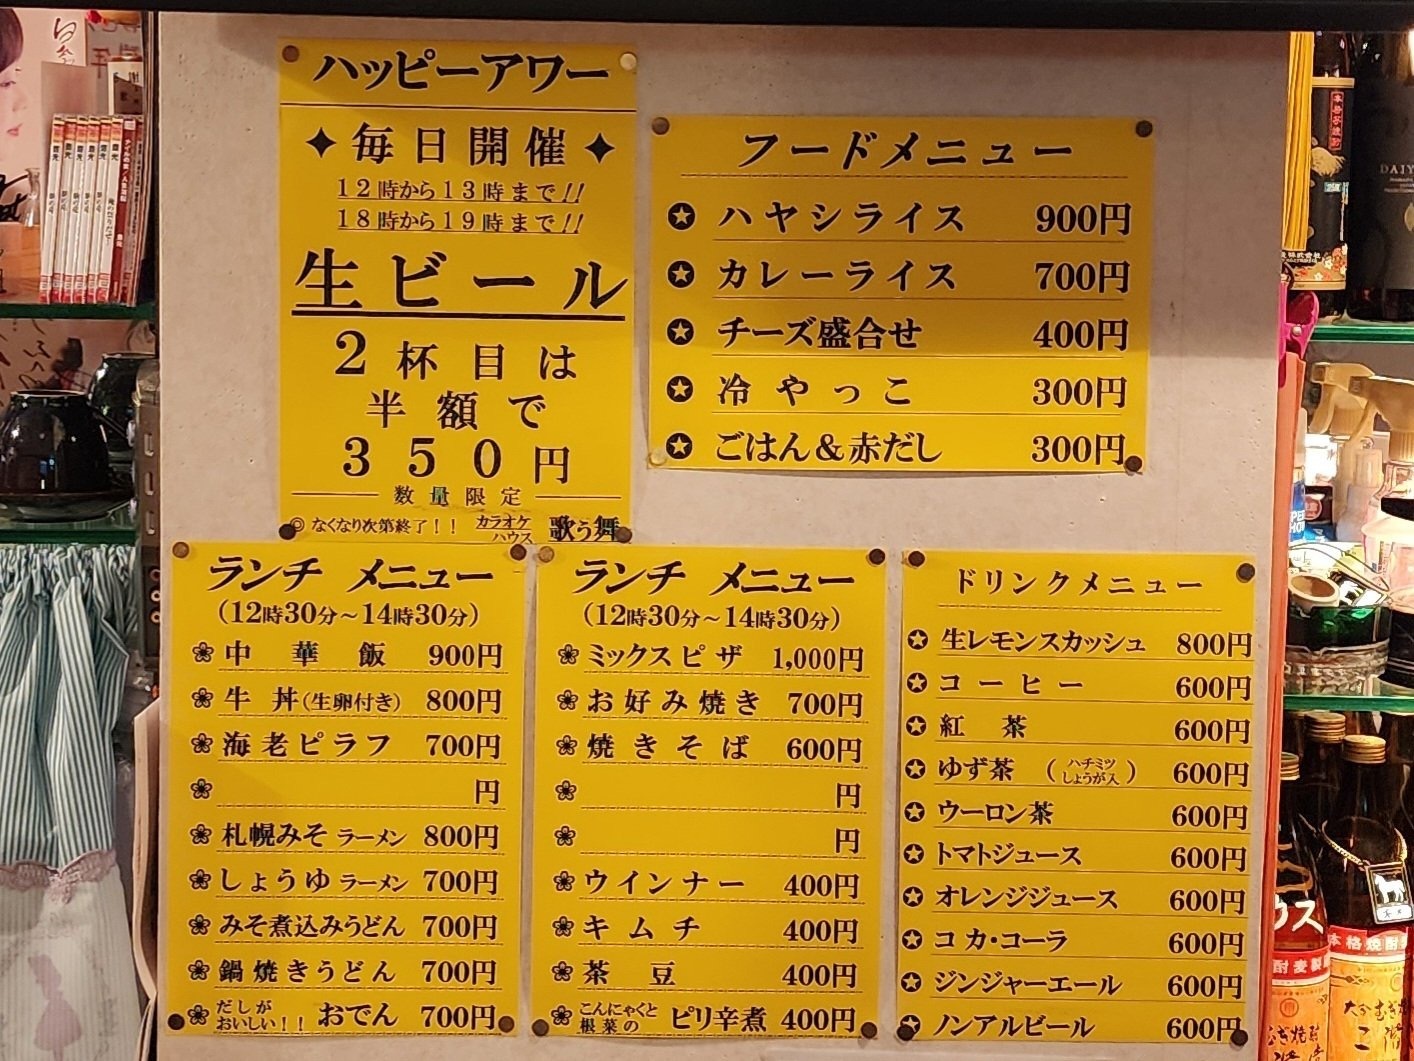 ハッピーアワー
✦毎日開催✦
12時から13時まで!!
18時から19時まで!!
生ビール
2杯目は
半額で
350円
数量限定
◎なくなり次第終了！！ カラオケハウス 歌う舞
フードメニュー
✪ ハヤシライス 900円
✪ カレーライス 700円
✪ チーズ盛合せ 400円
✪ 冷やっこ 300円
✪ ごはん＆赤だし 300円
ランチ メニュー
（12時30分～14時30分）
❀ 中華飯 900円
❀ 牛丼(生卵付き) 800円
❀ 海老ピラフ 700円
❀ 円
❀ 札幌みそ ラーメン 800円
❀ しょうゆ ラーメン 700円
❀ みそ煮込みうどん 700円
❀ 鍋焼きうどん 700円
❀ だしがおいしい！！ おでん 700円
ランチ メニュー
（12時30分～14時30分）
❀ ミックスピザ 1,000円
❀ お好み焼き 700円
❀ 焼きそば 600円
❀ 円
❀ 円
❀ ウインナー 400円
❀ キムチ 400円
❀ 茶豆 400円
❀ こんにゃくと根菜の ピリ辛煮 400円
ドリンクメニュー
✪ 生レモンスカッシュ 800円
✪ コーヒー 600円
✪ 紅茶 600円
✪ ゆず茶（ハチミツしょうが入） 600円
✪ ウーロン茶 600円
✪ トマトジュース 600円
✪ オレンジジュース 600円
✪ コカ･コーラ 600円
✪ ジンジャーエール 600円
✪ ノンアルビール 600円
本格焼酎